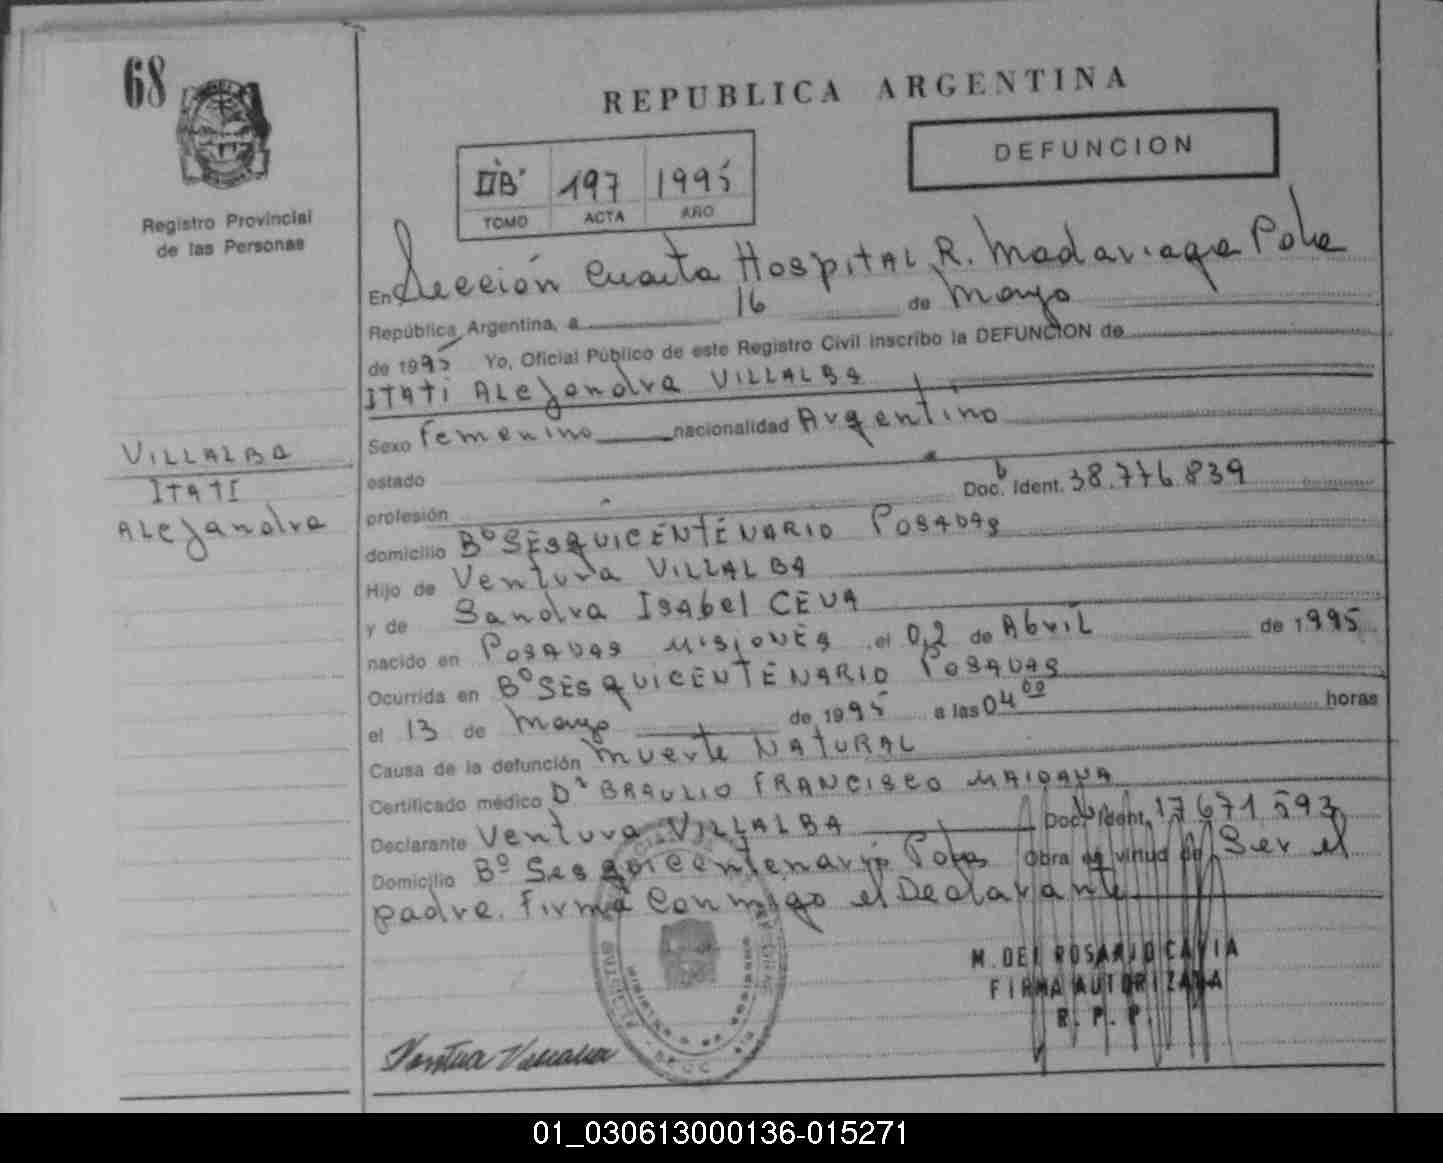 68
REPUBLICA ARGENTINA
DEFUNCION
IIB' 197 1995
TOMO ACTA AÑO
Registro Provincial
de las Personas
En Sección Cuarta Hospital R. Madariaga Pdas
República Argentina, a 16 de Mayo
de 1995 Yo, Oficial Público de este Registro Civil inscribo la DEFUNCION de
ITATI Alejandra VILLALBA
Sexo Femenino nacionalidad Argentino
estado
profesión Doc. Ident. 38.776.839
domicilio Bº SESQUICENTENARIO POSADAS
Hijo de Ventura VILLALBA
y de Sandra Isabel CEVA
nacido en POSADAS MISIONES el 02 de Abril de 1995
Ocurrida en Bº SESQUICENTENARIO POSADAS
el 13 de Mayo de 1995 a las 04 00 horas
Causa de la defunción Muerte NATURAL
Certificado médico Dr BRAULIO FRANCISCO MAIDANA
Declarante Ventura VILLALBA Doc. Ident. 17671593
Domicilio Bº Sesquicentenario Pdas Obra en virtud de Ser el
padre. Firma Conmigo el Declarante
VILLALBA
ITATI
Alejandra
M. DEL ROSARIO CAVIA
FIRMA AUTORIZADA
R. P. P.
Ventura Villalba
01_030613000136-015271